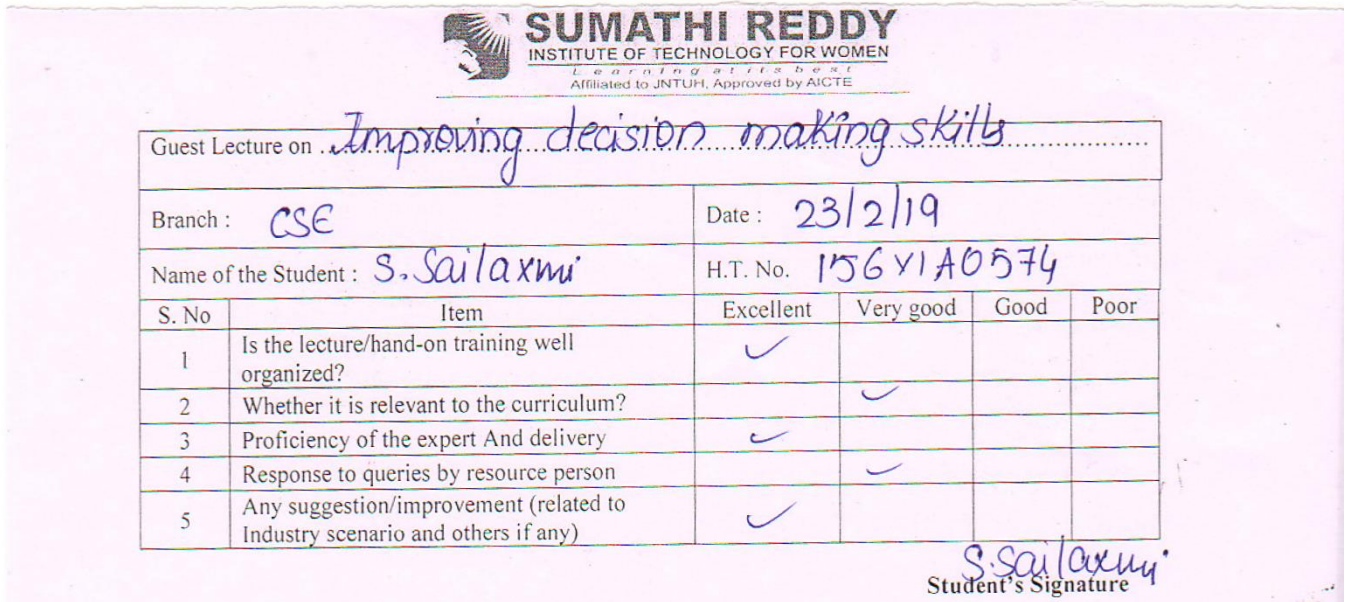 SUMATHI REDDY
INSTITUTE OF TECHNOLOGY FOR WOMEN
Learning at its best
Affiliated to JNTUH, Approved by AICTE
Guest Lecture on Improving decision making skills
Branch : CSE Date : 23/2/19
Name of the Student : S. Sailaxmi H.T. No. 156Y1A0574
S. No Item Excellent Very good Good Poor
1 Is the lecture/hand-on training well
organized? ✓
2 Whether it is relevant to the curriculum? ✓
3 Proficiency of the expert And delivery ✓
4 Response to queries by resource person ✓
5 Any suggestion/improvement (related to
Industry scenario and others if any) ✓
S. Sailaxmi
Student's Signature